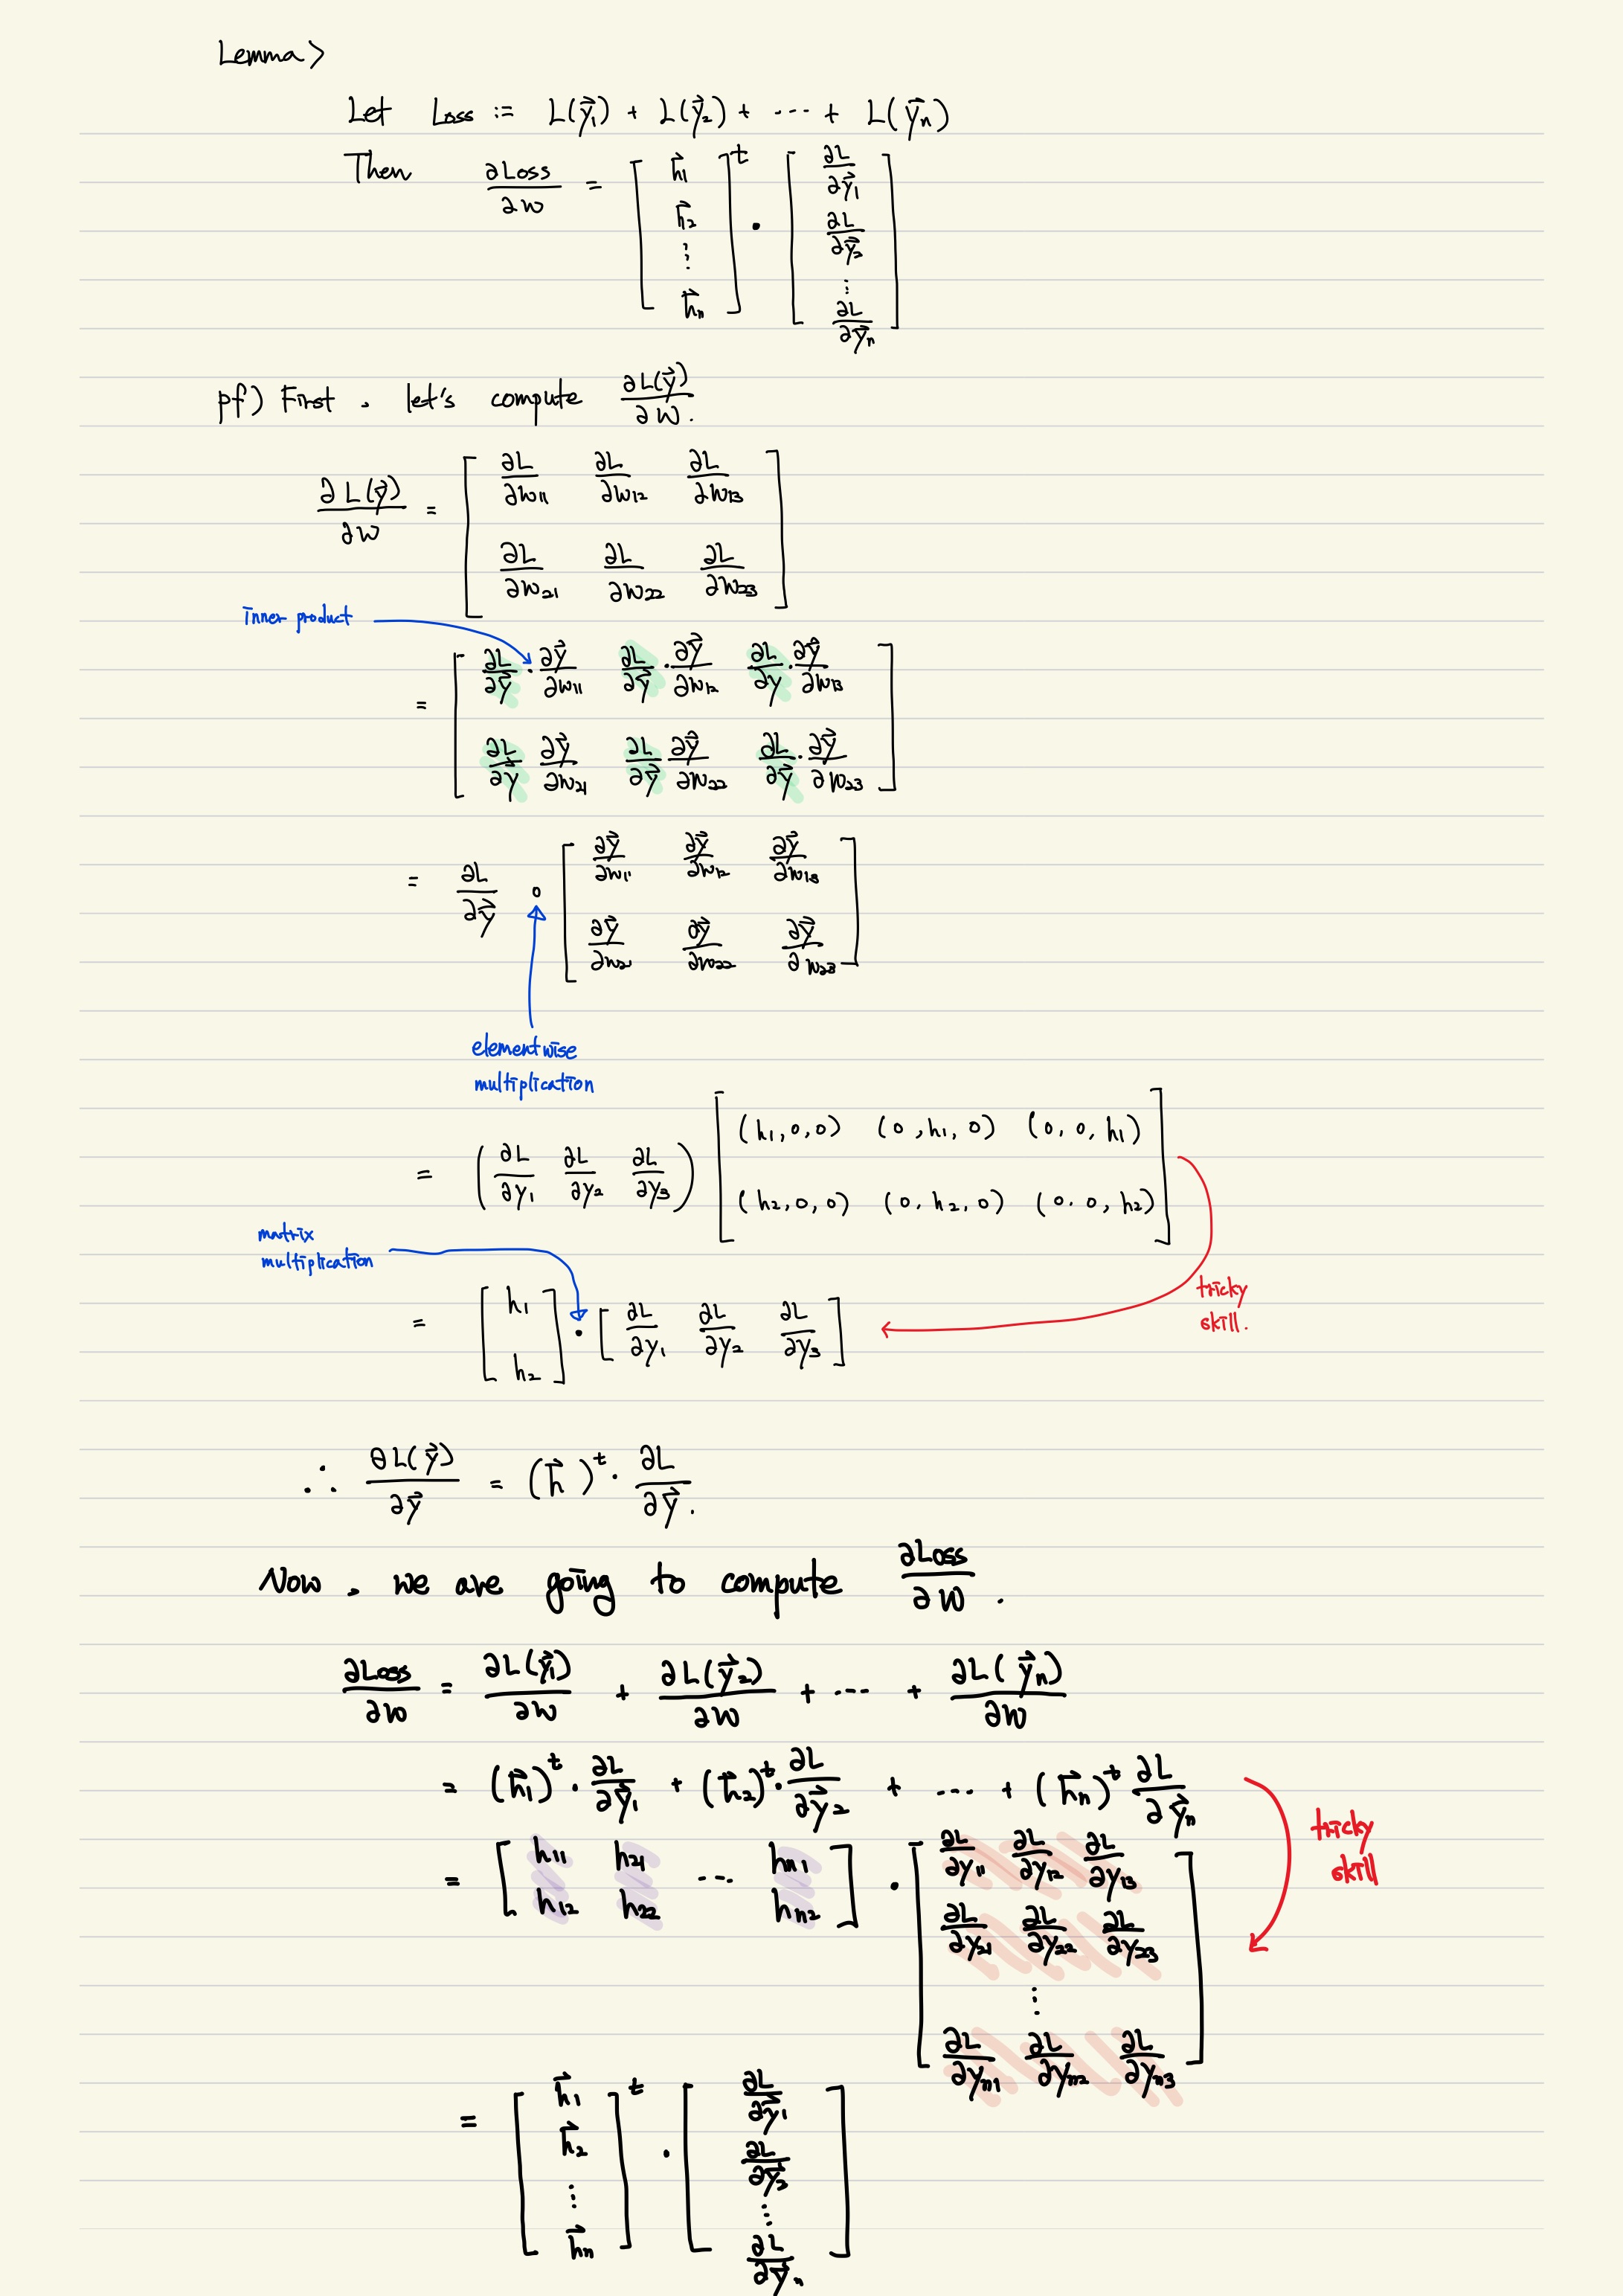 Lemma>
Let Loss := L(y⃗₁) + L(y⃗₂) + ⋯ + L(y⃗ₙ)
Then ∂Loss/∂W = [h⃗₁ ; h⃗₂ ; ⋮ ; h⃗ₙ]ᵗ · [∂L/∂y⃗₁ ; ∂L/∂y⃗₂ ; ⋮ ; ∂L/∂y⃗ₙ]
pf) First. let's compute ∂L(y⃗)/∂W.
∂L(y⃗)/∂W = [∂L/∂w₁₁ ∂L/∂w₁₂ ∂L/∂w₁₃ ; ∂L/∂w₂₁ ∂L/∂w₂₂ ∂L/∂w₂₃]
inner product
= [∂L/∂y⃗ · ∂y⃗/∂w₁₁ ∂L/∂y⃗ · ∂y⃗/∂w₁₂ ∂L/∂y · ∂y⃗/∂w₁₃ ; ∂L/∂y⃗ ∂y⃗/∂w₂₁ ∂L/∂y⃗ ∂y⃗/∂w₂₂ ∂L/∂y⃗ · ∂y⃗/∂w₂₃]
= ∂L/∂y⃗ ∘ [∂y⃗/∂w₁₁ ∂y⃗/∂w₁₂ ∂y⃗/∂w₁₃ ; ∂y⃗/∂w₂₁ ∂y⃗/∂w₂₂ ∂y⃗/∂w₂₃]
elementwise
multiplication
= (∂L/∂y₁ ∂L/∂y₂ ∂L/∂y₃) [(h₁,0,0) (0,h₁,0) (0,0,h₁) ; (h₂,0,0) (0,h₂,0) (0.0,h₂)]
matrix
multiplication
tricky
skill.
= [h₁ ; h₂] · [∂L/∂y₁ ∂L/∂y₂ ∂L/∂y₃]
∴ ∂L(y⃗)/∂y⃗ = (h⃗)ᵗ · ∂L/∂y⃗.
Now. we are going to compute ∂Loss/∂W.
∂Loss/∂W = ∂L(y⃗₁)/∂W + ∂L(y⃗₂)/∂W + ⋯ + ∂L(y⃗ₙ)/∂W
= (h⃗₁)ᵗ · ∂L/∂y⃗₁ + (h⃗₂)ᵗ · ∂L/∂y⃗₂ + ⋯ + (h⃗ₙ)ᵗ ∂L/∂y⃗ₙ
tricky
skill
= [h₁₁ h₂₁ ⋯ hₙ₁ ; h₁₂ h₂₂ hₙ₂] · [∂L/∂y₁₁ ∂L/∂y₁₂ ∂L/∂y₁₃ ; ∂L/∂y₂₁ ∂L/∂y₂₂ ∂L/∂y₂₃ ; ⋮ ; ∂L/∂yₙ₁ ∂L/∂yₙ₂ ∂L/∂yₙ₃]
= [h⃗₁ ; h⃗₂ ; ⋮ ; h⃗ₙ]ᵗ · [∂L/∂y⃗₁ ; ∂L/∂y⃗₂ ; ⋮ ; ∂L/∂y⃗ₙ]